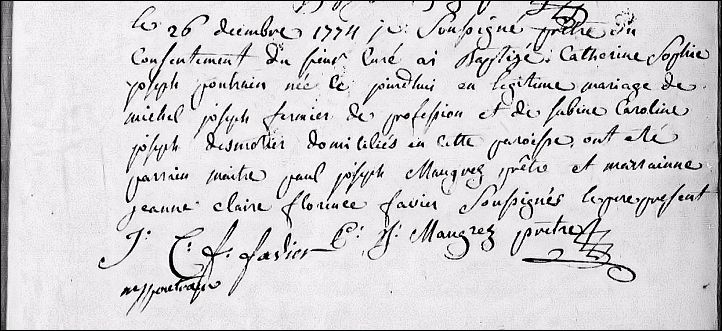 le 26 décembre 1774 je Soussigné prêtre du
Consentement du sieur Curé ai Baptizé Catherine Sophie
joseph poutrain née ce jourdhui en légitime mariage de
michel joseph fermier de profession et de sabine Caroline
joseph desmotier domiciliés en cette paroisse ont été
parrain maitre paul joseph Maugrez prêtre et marrainne
jeanne claire florence favier Soussignés le pere present
J. C. f. favier P. J. Maugrez prêtre
mjpoutrain